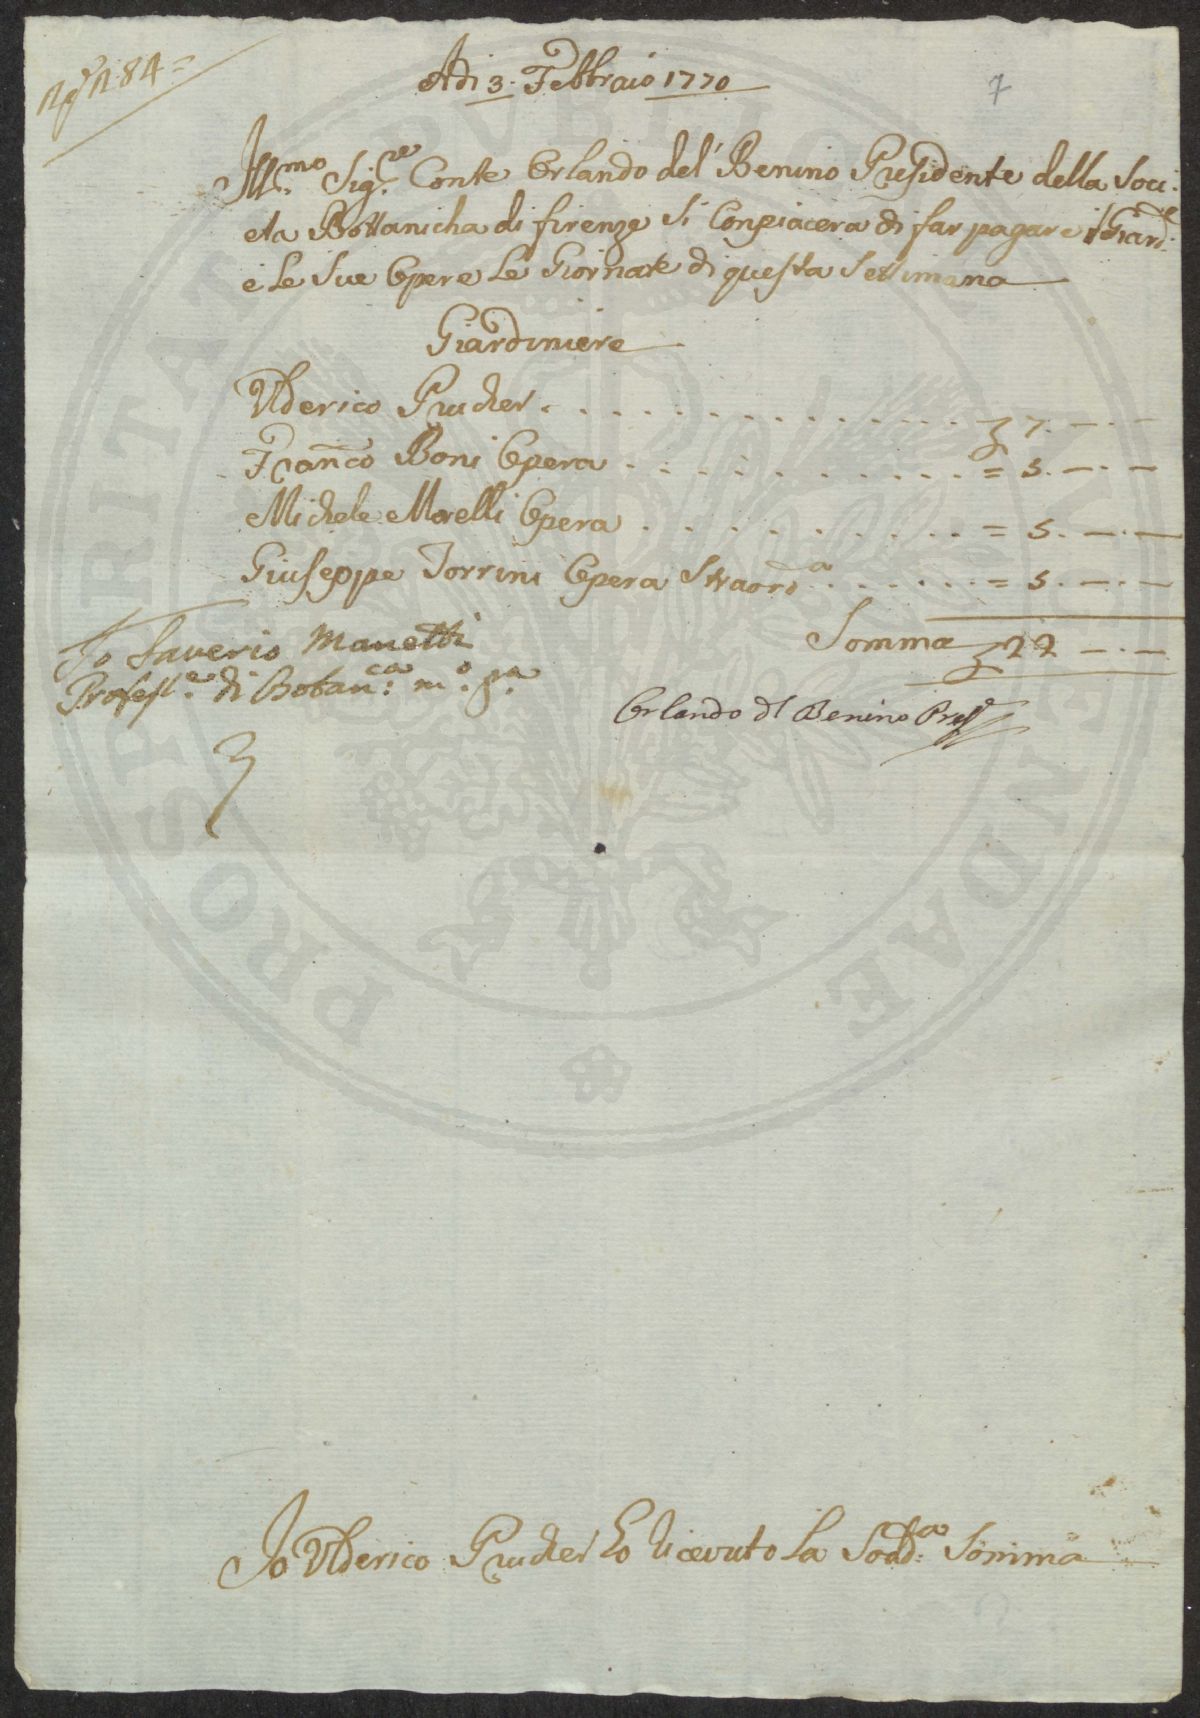 84=
Adi 3. Febbraio 1770
7
Ill.mo Sig.re Conte Orlando del' Benino Presidente della Soci-
eta Bottanicha di firenze Si Conpiacera di far pagare il Giard.e
e Le Sue Opere Le Giornate di questa Settimana
Giardiniere
Ulderico Prucher . . . . . . . . . . . . . £ 7. —. —
Fran.co Boni Opera . . . . . . . . . . . = 5. —. —
Michele Morelli Opera . . . . . . . . . = 5. —. —
Giuseppe Torrini Opera Straord.a . . . . . . = 5. —. —
Somma £ 22 —. —
Io Saverio Manetti
Profess.e di Botan.ca m.o p.a
Orlando del Benino Pres.e
Io Ulderico Prucher ho ricevuto La Sodd.a Somma
PROSPERITATI PUBLICAE AUGENDAE